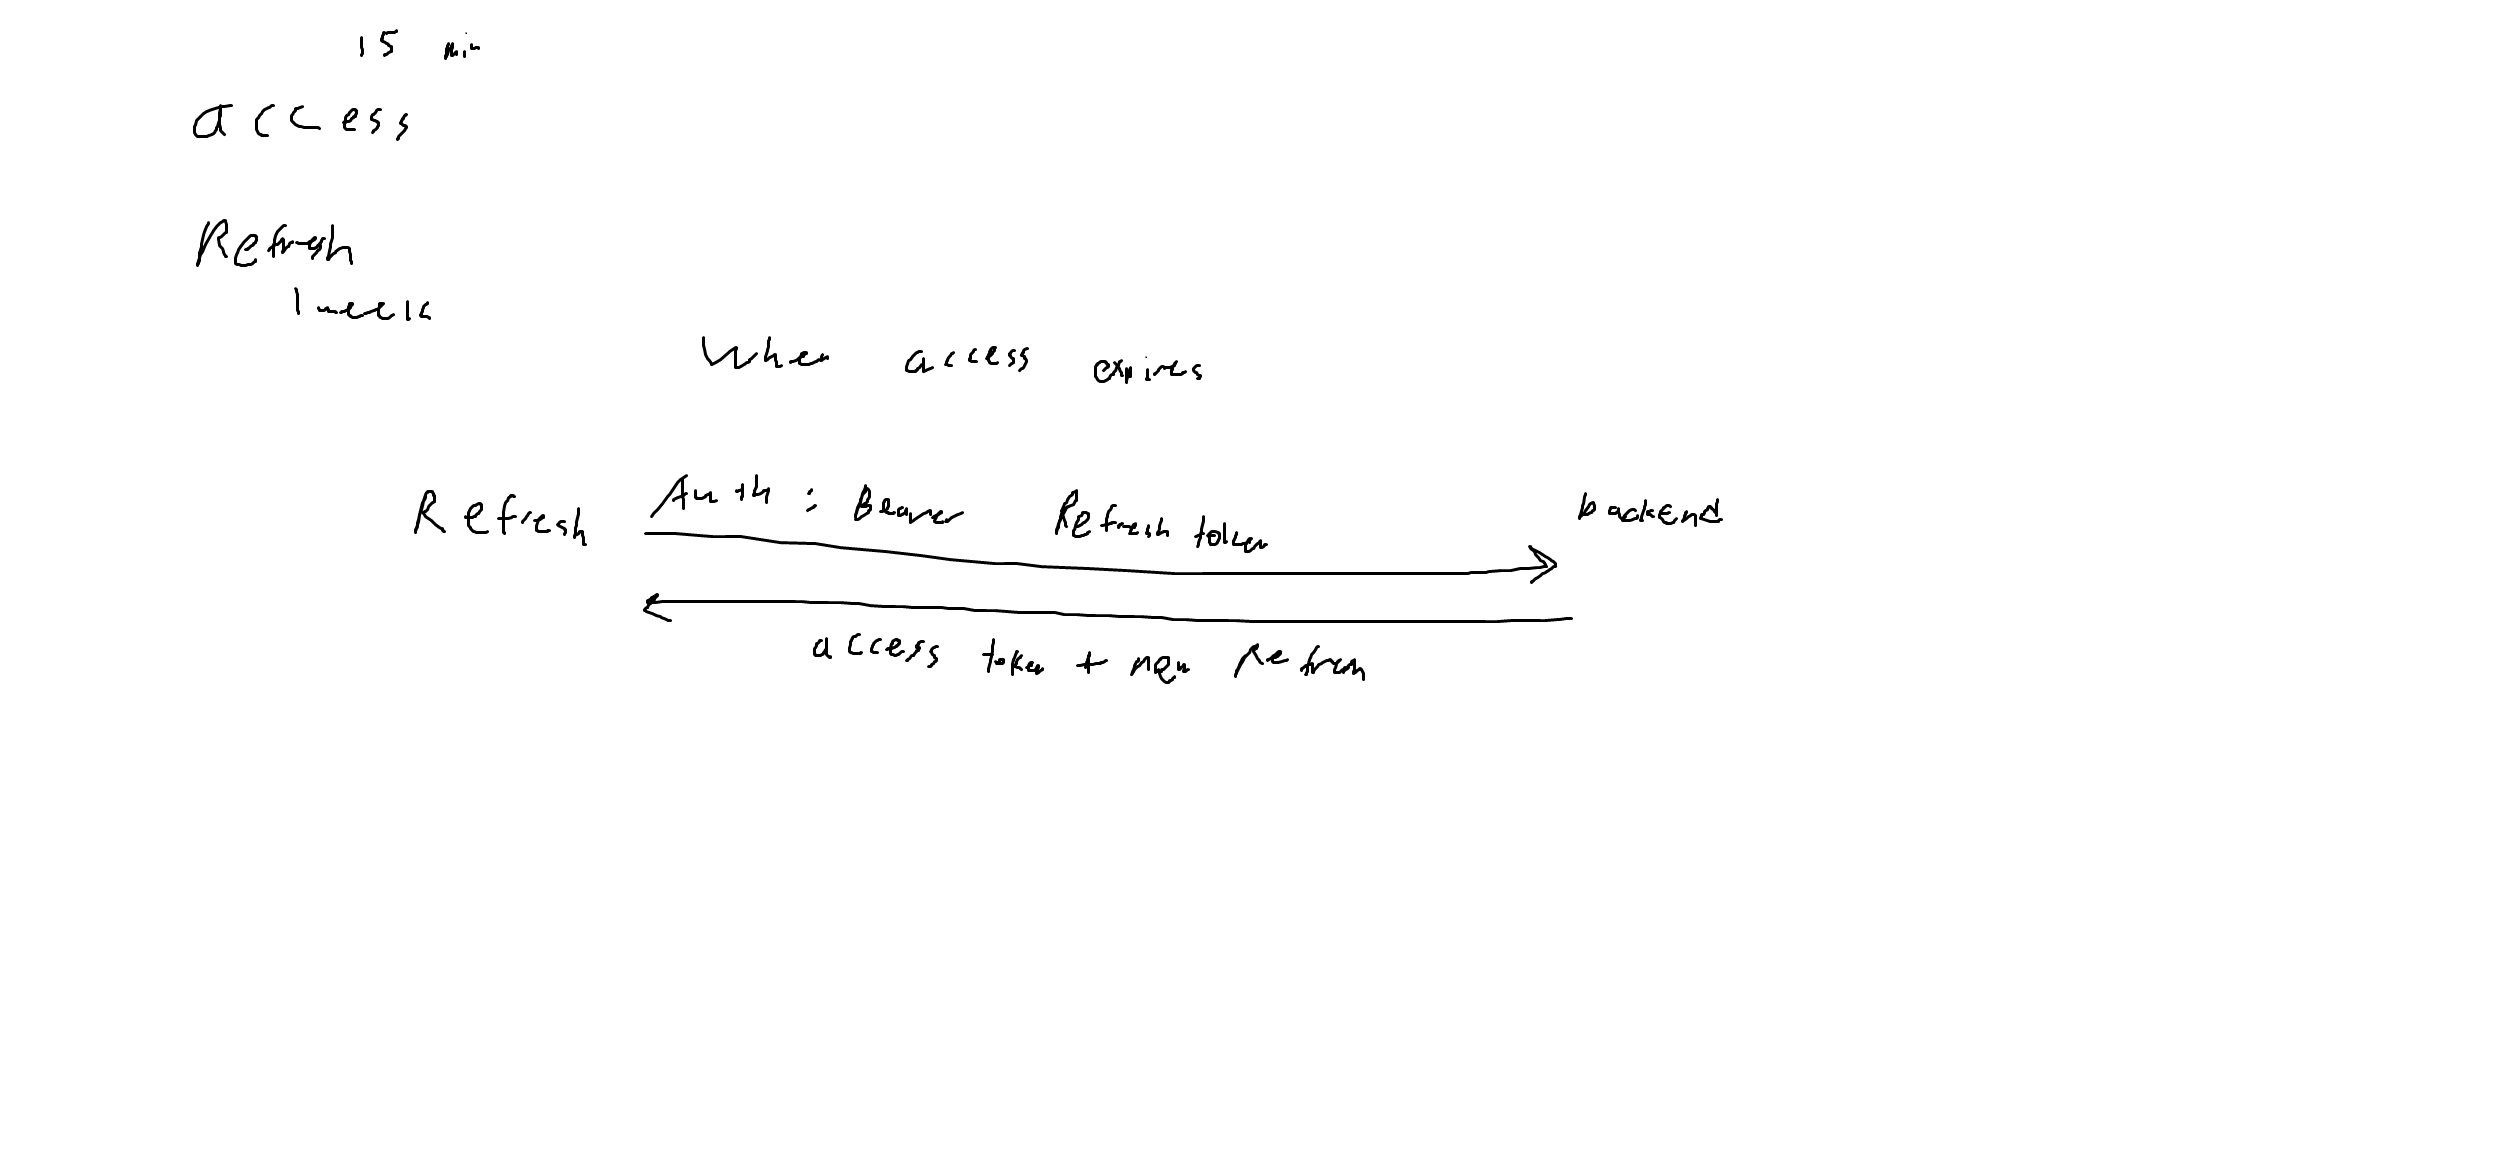 15 min
access
Refresh
1 week
When access expires
Refresh Auth : Bearer Refresh token backend
access token + new Refresh